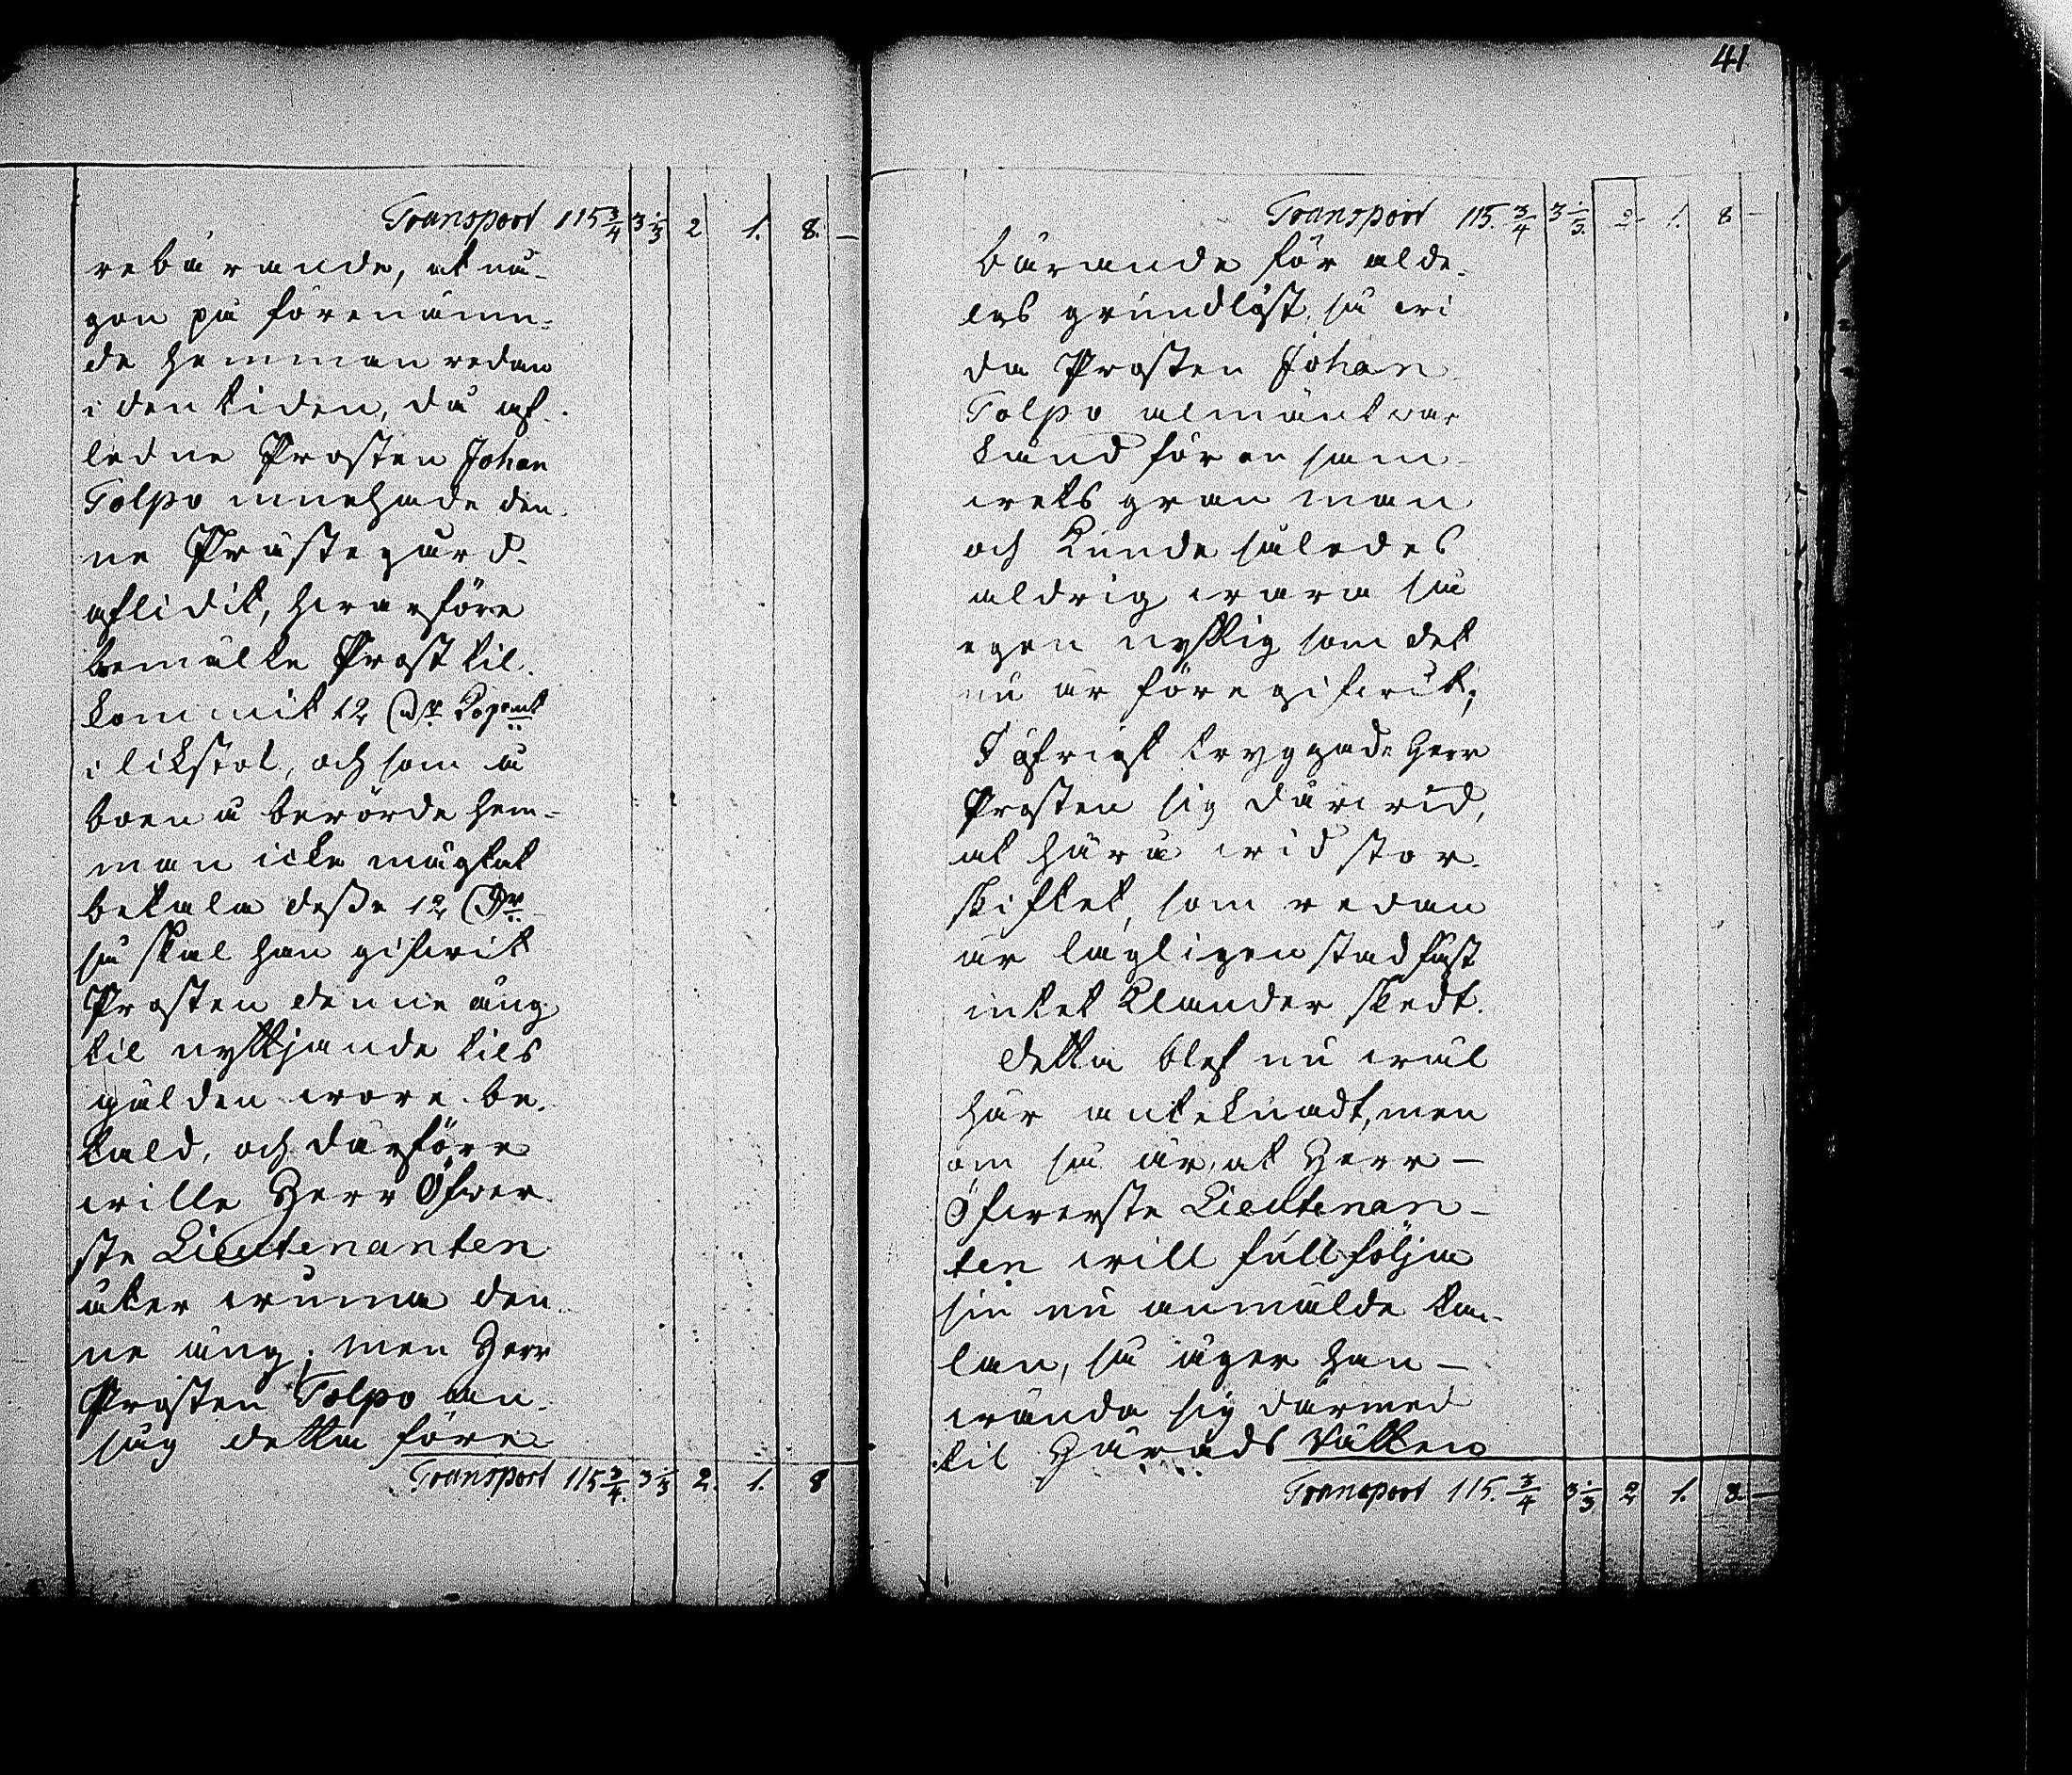 Transport 115 3/4 3 1/3 2 1. 8. —
rebärande, at nå-
gon på förenämn-
de hemman redan
i den tiden, då af-
ledne Prosten Johan
Tolpo innehade den-
ne Prästegård
aflidit, hvarföre
bemälte Prost til-
kommit 12 Dr Koppmt
i likstol, och som å
boen å berörde hem-
man icke mägtat
betala desse 12 Dr
så skal han gifwit
Prosten denne äng
til nyttjande tils
gälden wore be-
tald, och därföre
wille Herr Öfwer-
ste Lieutenanten
åter winna den-
ne äng; men Herr
Prosten Tolpo an-
såg detta före-
Transport 115 3/4. 3 1/3 2. 1. 8
41
Transport 115. 3/4 3 1/3. 2 1. 8 —
bärande för alde-
les grundlöst, så wi
da Prosten Johan
Tolpo almänt war
känd för en sam-
wets gran man
och kunde således
aldrig wara så
egen nyttig som det
nu är föregifwit;
I öfrigt tryggade Herr
Prosten sig därwid,
at härå wid stor-
skiftet, som redan
är lagligen stadfäst
intet klander skedt.
Detta blef nu wäl
här anteknadt, men
om så är, at Herr —
Öfwerste Lieutenan-
ten will fullfölja
sin nu anmälde ta-
lan, så äger han —
wända sig därmed
til Härads Rätten
Transport 115. 3/4 3 1/3. 2 1. 8 —